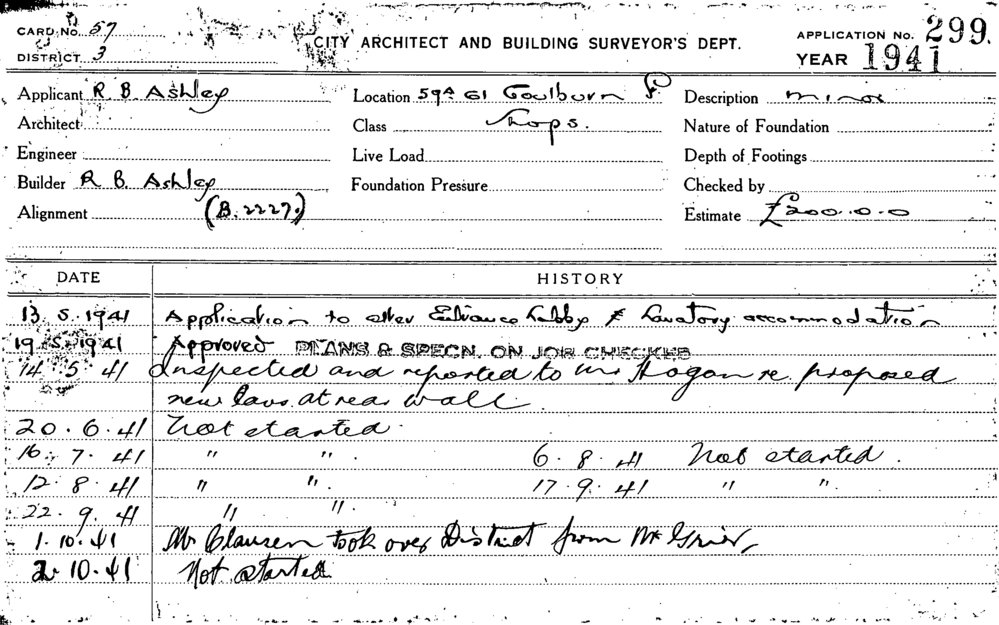 CARD No. 57
DISTRICT 3
CITY ARCHITECT AND BUILDING SURVEYOR'S DEPT.
APPLICATION No. 299.
YEAR 1941
Applicant R. B. Ashley
Location 59A 61 Goulburn St.
Description minor
Architect
Class Shops.
Nature of Foundation
Engineer
Live Load
Depth of Footings
Builder R. B. Ashley
Foundation Pressure
Checked by
Alignment (B.2227.)
Estimate £200.0.0
DATE HISTORY
13.5.1941 Application to alter Entrance Lobby & Lavatory accommodation
19.5.1941 Approved PLANS & SPECN. ON JOB CHECKED
14.5.41 Inspected and reported to Mr Hogan re. proposed
new lavs. at rear wall.
20.6.41 Not started.
16.7.41 " ". 6.8.41 Not started.
12.8.41 " ". 17.9.41 " ".
22.9.41 " ".
1.10.41 Mr Clausen took over District from Mr Grier,
2.10.41 Not started.